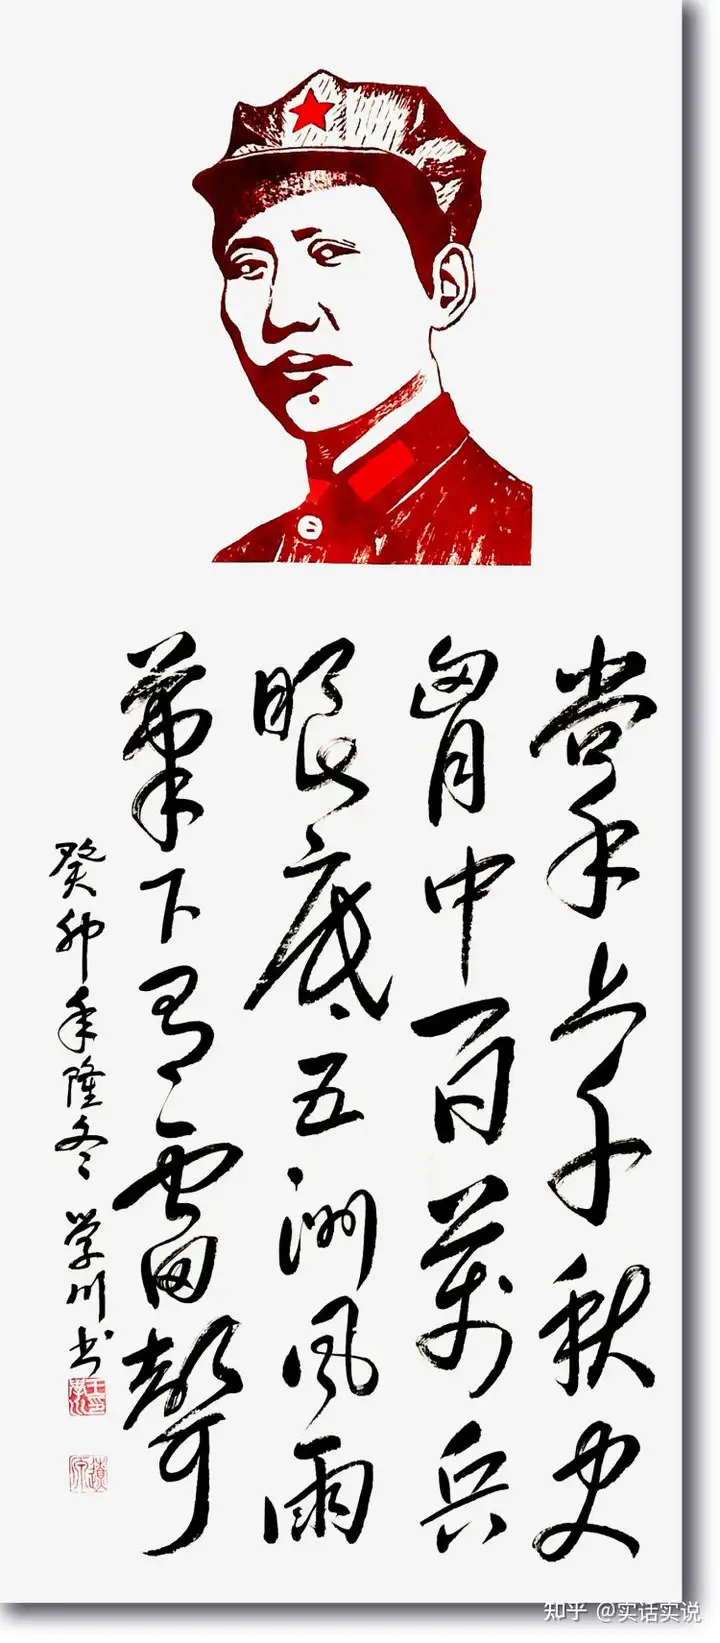 掌上千秋史
胷中百萬兵
眼底五洲风雨
筆下有雷聲
癸卯年隆冬 学川书
知乎 @实话实说